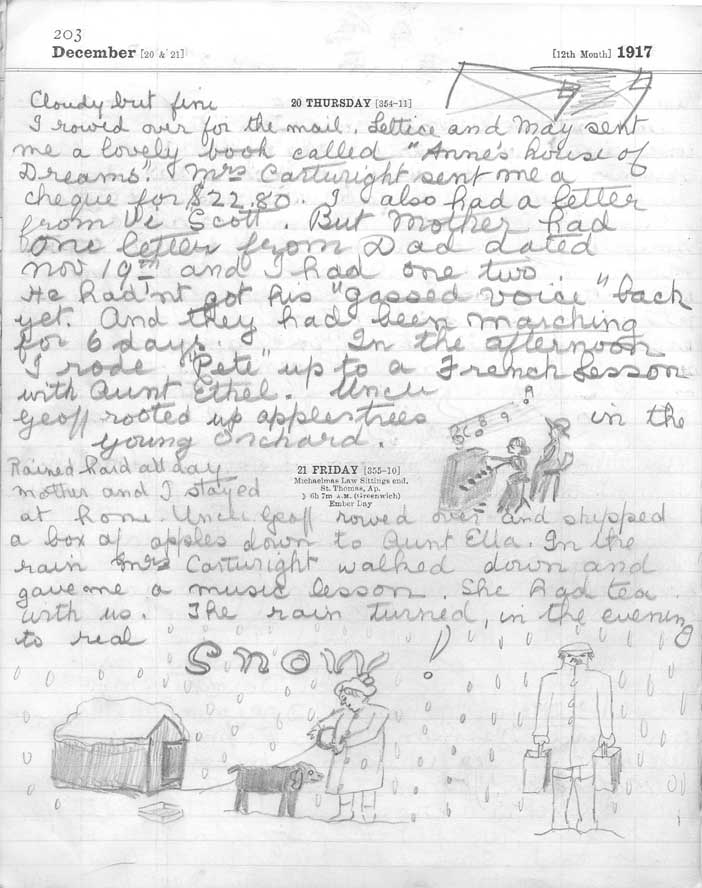 203
December [20 & 21] [12th Month] 1917
Cloudy but fine
20 THURSDAY [354-11]
I rowed over for the mail. Lettice and May sent
me a lovely book called "Anne's house of
Dreams". Mrs Cartwright sent me a
cheque for $22.80. I also had a letter
from Vi Scott. But Mother had
one letter from Dad dated
Nov 19th and I had one two.
He had'nt got his "gassed voice" back
yet. And they had been marching
for 6 days. In the afternoon
I rode "Pete" up to a French Lesson
with Aunt Ethel. Uncle
Geoff rooted up apples trees in the
young Orchard.
Rained hard all day
21 FRIDAY [355-10]
Michaelmas Law Sittings end.
St. Thomas, Ap.
☽ 6h 7m A.M. (Greenwich)
Ember Day
Mother and I stayed
at home. Uncle Geoff rowed over and shipped
a box of apples down to Aunt Ella. In the
rain Mrs Cartwright walked down and
gave me a music lesson. She had tea
with us. The rain turned, in the evening
to real
SNOW!